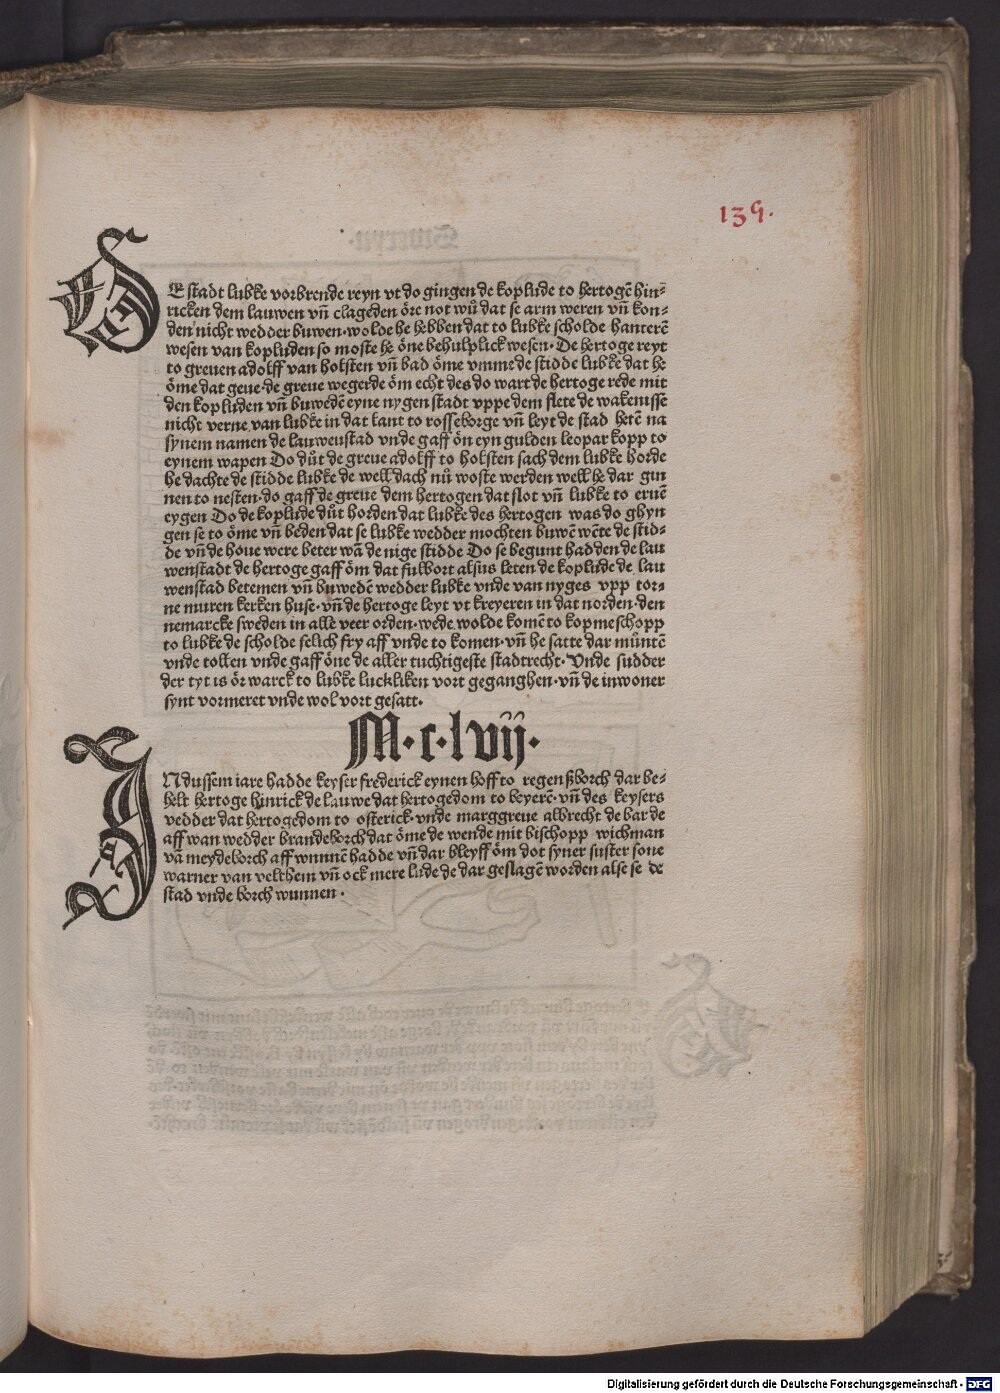 139.
DE stadt lubke vorbrende reyn vt do gingen de koplude to hertogē hin⸗
ricken dem lauwen vn̄ clageden öre not wů dat se arm weren vn̄ kon⸗
den nicht wedder buwen·wolde he hebben dat to lubke scholde hanterē
wesen van kopluden so moste he öne behulplick wesen· De hertoge reyt
to greuen adolff van holsten vn̄ bad öme vmme de stidde lubke dat he
öme dat geue·de greue wegerde öm echt des do wart de hertoge rede mit
den kopluden vn̄ buwedē eyne nygen stadt vppe dem flete de wakenisse
nicht verne van lubke in dat lant to rosseborge vn̄ leyt de stad hetē na
synem namen de lauwenstad vnde gaff ön eyn gulden leopar kopp to
eynem wapen Do důt de greue adolff to holsten sach dem lubke horde
he dachte de stidde lubke de well dach nů woste werden well he dar gun
nen to nesten·do gaff de greue dem hertogen dat slot vn̄ lubke to eruē
eygen Do de koplude důt horden dat lubke des hertogen was do ghyn
gen se to öme vn̄ beden dat se lubke wedder mochten buwē wēte de stid⸗
de vn̄ de houe were beter wā de nige stidde Do se begunt hadden de lau
wenstadt de hertoge gaff öm dat fulbort alsus leten de koplude de lau
wenstad betemen vn̄ buwedē wedder lubke vnde van nyges vpp tor⸗
ne muren kerken huse·vn̄ de hertoge leyt vt kreyeren in dat norden·den
nemarcke sweden in alle veer orden·wede wolde komē to kopmeschopp
to lubke de scholde selich fry aff vnde to komen·vn̄ he satte dar můntē
vnde tollen vnde gaff öne de aller tuchtigeste stadtrecht· Vnde sudder
der tyt is ör warck to lubke luckliken vort geganghen·vn̄ de inwoner
synt vormeret vnde wol vort gesatt.
M·c·lvij·
INdussem iare hadde keyser frederick eynen hoff to regenßborch dar be⸗
helt hertoge hinrick de lauwe dat hertogedom to beyerē·vn̄ des keysers
vedder dat hertogedom to osterick·vnde marggreue albrecht de bar de
aff wan wedder brandeborch dat öme de wende mit bischopp wichman
vā meydeborch aff wunnē hadde vn̄ dar bleyff öm dot syner suster sone
warner van velthem vn̄ ock mere lude de dar geslagē worden alse se de
stad vnde borch wunnen·
Digitalisierung gefördert durch die Deutsche Forschungsgemeinschaft - DFG